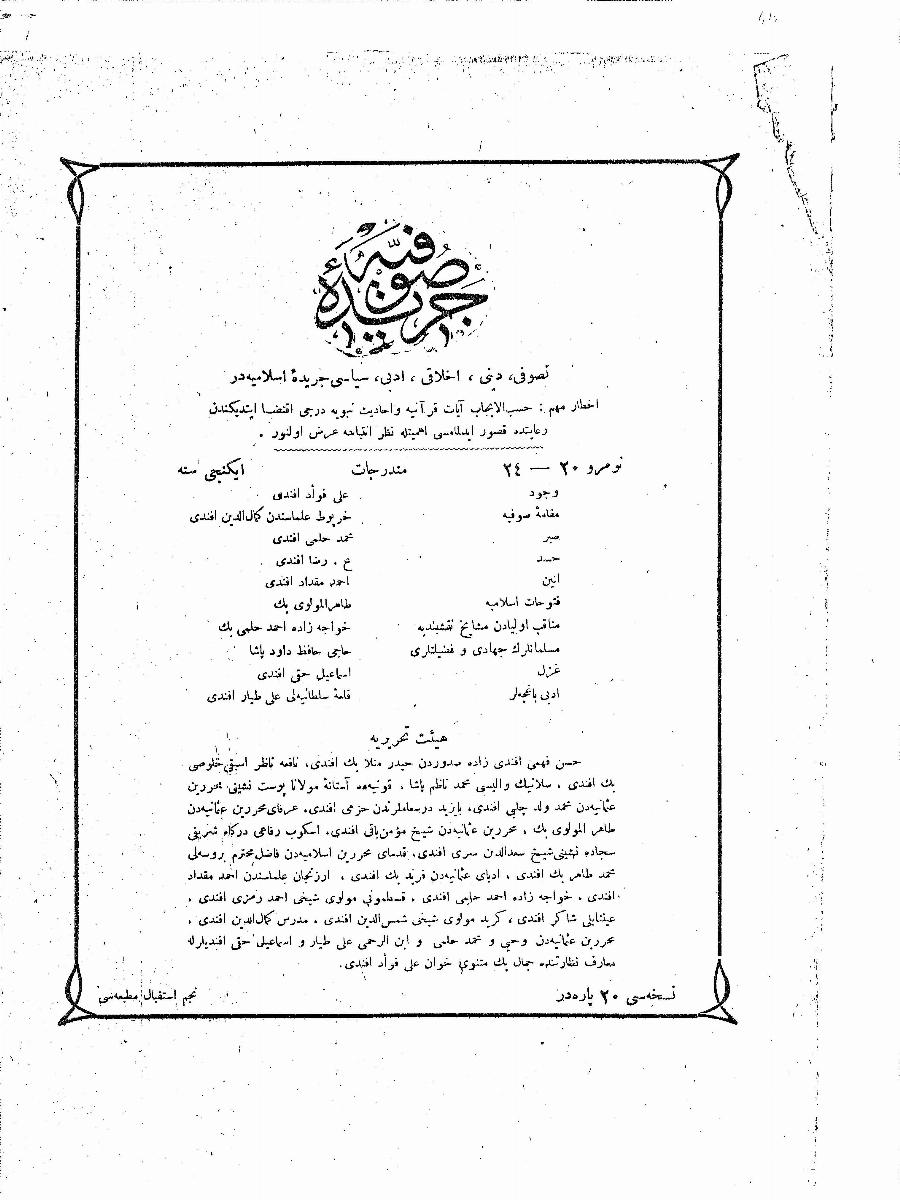 جريدۀ صوفيه
تصوفى، دينى، اخلاقى، ادبى، سياسى جريدۀ اسلاميه‌در
اخطار مهم : حسب‌الايجاب آيات قرآنيه واحاديث نبويه درجى اقتضا ايتديكندن
رعايتده قصور ايدلمامسى اهميتله نظر انتباهه عرض اولنور .
نومرو ٢٠ — ٢٤ مندرجات ايكنجى سنه
وجود على فؤاد افندى
مقامۀ صوفيه خرپوط علماسندن كمال‌الدين افندى
صبر محمد حلمى افندى
حسد ع . رضا افندى
انين احمد مقداد افندى
فتوحات اسلاميه طاهرالمولوى بك
مناقب اوليادن مشايخ نقشبنديه خواجه زاده احمد حلمى بك
مسلمانلرك جهادى و فضيلتلرى حاجى حافظ داود پاشا
غزل اسماعيل حقى افندى
ادبى باغچه‌لر قلعۀ سلطانيه‌لى على طيار افندى
هيئت تحريريه
حسن فهمى افندى زاده صدوردن حيدر منلا بك افندى، نافعه ناظر اسبقى خلوصى
بك افندى ، سلانيك واليسى محمد ناظم پاشا ، قونيه‌ده آستانۀ مولانا پوست نشينى محررين
عثمانيه‌دن محمد ولد چلبى افندى، بايزيد درسعاملرندن حزمى افندى، عرفاى محررين عثمانيه‌دن
طاهر المولوى بك ، محررين عثمانيه‌دن شيخ مؤمن باقى افندى، اسكوب رفاعى دركاه شريفى
سجاده نشينى شيخ سعدالدين سرى افندى، قدماى محررين اسلاميه‌دن فاضل محترم بروسه‌لى
محمد طاهر بك افندى ، ادباى عثمانيه‌دن فريد بك افندى ، ارزنجان علماسندن احمد مقداد
افندى ، خواجه زاده احمد حلمى افندى ، قسطمونى مولوى شيخى احمد رمزى افندى ،
عينتابلى شاكر افندى ، كريد مولوى شيخى شمس‌الدين افندى ، مدرس كمال‌الدين افندى ،
محررين عثمانيه‌دن وحيى و محمد حلمى و ابن الرحمى على طيار و اسماعيل حقى افنديلرله
معارف نظارتنده جمال بك مثنوى خوان على فؤاد افندى.
نسخه‌سى ٢٠ پاره‌در نجم استقبال مطبعه‌سى